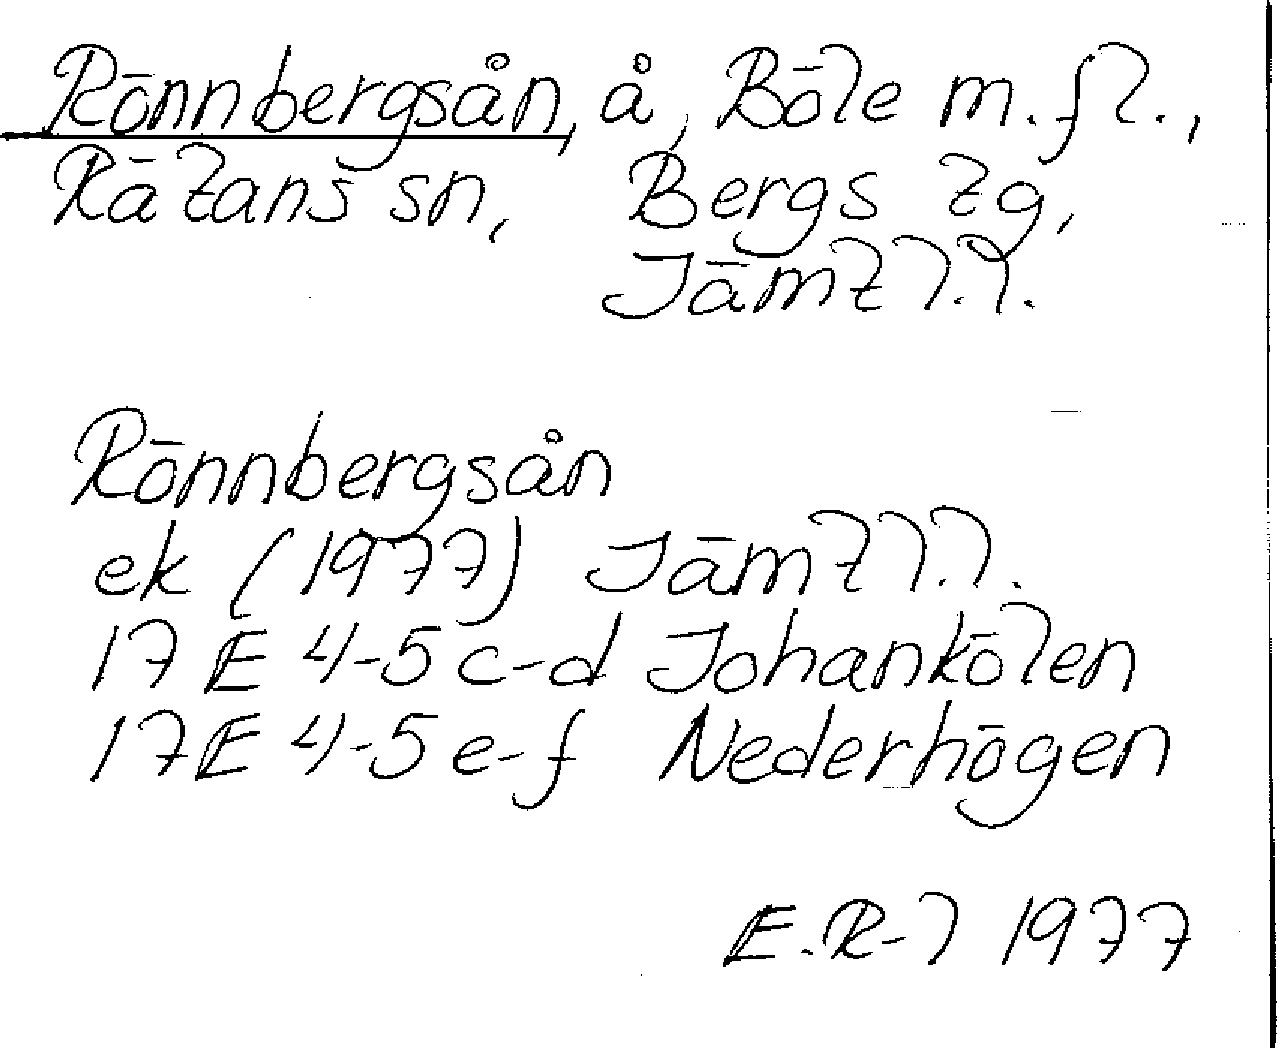 Rönnbergsån, å, Böle m.fl.,
Rätans sn, Bergs tg,
Jämtl.l.
Rönnbergsån
ek (1977) Jämtl.l.
17 E 4-5 c-d Johankölen
17E 4-5 e-f Nederhögen
E.R-l 1977